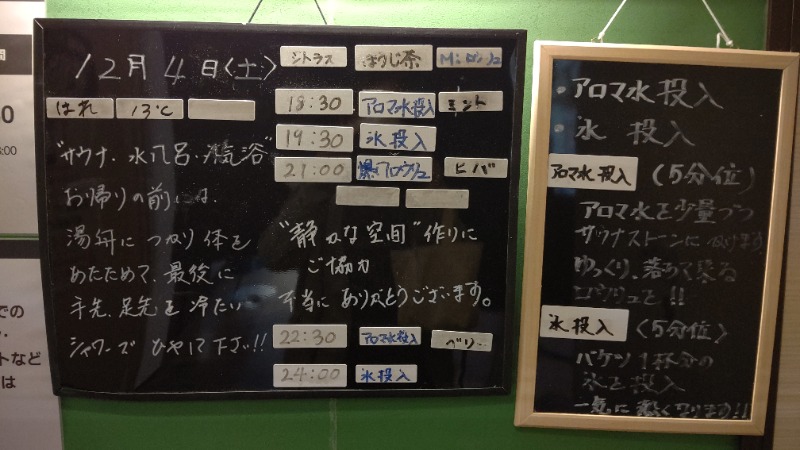 12月4日〈土〉
シトラス
ほうじ茶
はれ
13℃
18:30 アロマ水投入 ミント
19:30 氷投入
21:00 爆アロウリュ ヒバ
"サウナ・水風呂・外気浴"
お帰りの前には、
湯舟につかり体を
あたためて、最後に
手先、足先を冷たい
シャワーで ひやして下さい!!
"静かな空間"作りに
ご協力
本当にありがとうございます。
22:30 アロマ水投入 ベリー
24:00 氷投入
・アロマ水投入
・氷 投入
アロマ水投入 (5分位)
アロマ水を少量づつ
サウナストーンにかけます
ゆっくり、落ちて来る
ロウリュを!!
氷投入 (5分位)
バケツ1杯分の
氷を投入
一気に熱くなります!!
:00
での
トなど
は